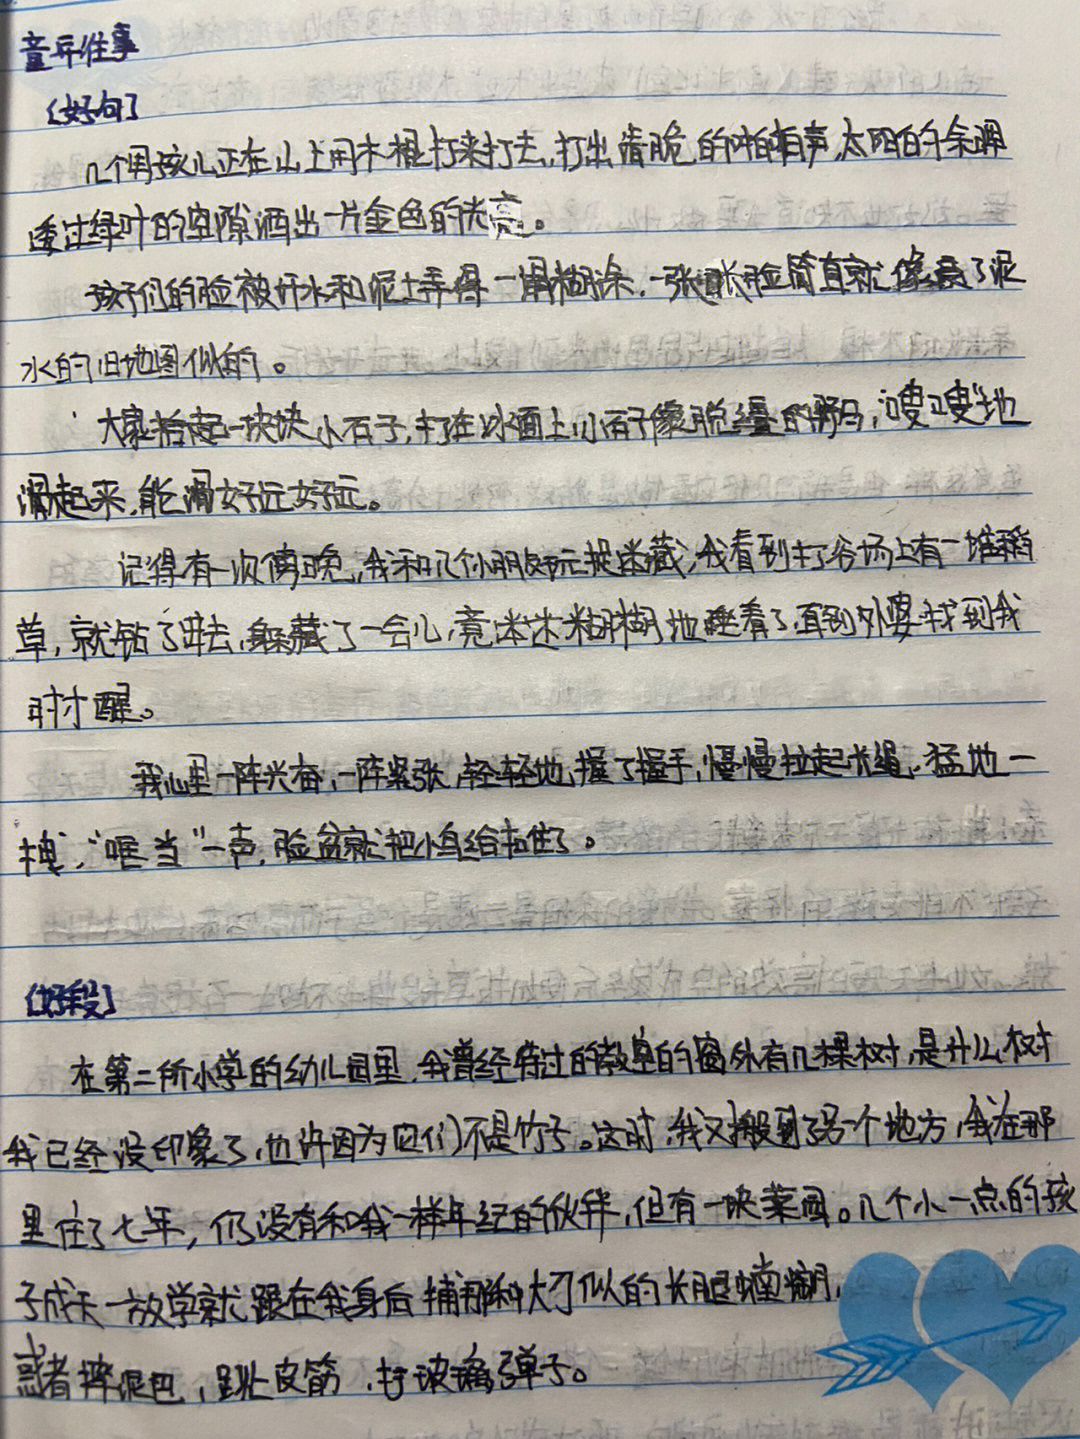 童年往事
〔好句〕
几个男孩儿正在山上用木棍打来打去,打出清脆的啪啪声,太阳的余晖
透过绿叶的空隙洒出一片金色的光亮。
孩子们的脸被汗水和泥土弄得一塌糊涂,一张张脸简直就像浸了泥
水的旧地图似的。
大家拾起一块块小石子,打在冰面上,小石子像脱缰的野马,"嗖嗖"地
滑起来,能滑好远好远。
记得有一次傍晚,我和几个小朋友玩捉迷藏,我看到打谷场上有一堆稻
草,就钻了进去,躲藏了一会儿,竟迷迷糊糊地睡着了,直到外婆找到我
时才醒。
我心里一阵兴奋,一阵紧张,轻轻地握了握手,慢慢拉起长绳,猛地一
拽,"哐当"一声,脸盆就把小鸟给扣住了。
〔好段〕
在第二所小学的幼儿园里,我曾经待过的教室的窗外有几棵树,是什么树
我已经没印象了,也许因为它们不是竹子。这时,我又搬到了另一个地方,我在那
里住了七年,仍没有和我一样年纪的伙伴,但有一块菜园。几个小一点的孩
子成天一放学就跟在我身后捕那种大刀似的长腿蟷螂,
或者摔泥巴,跳皮筋,打玻璃弹子。